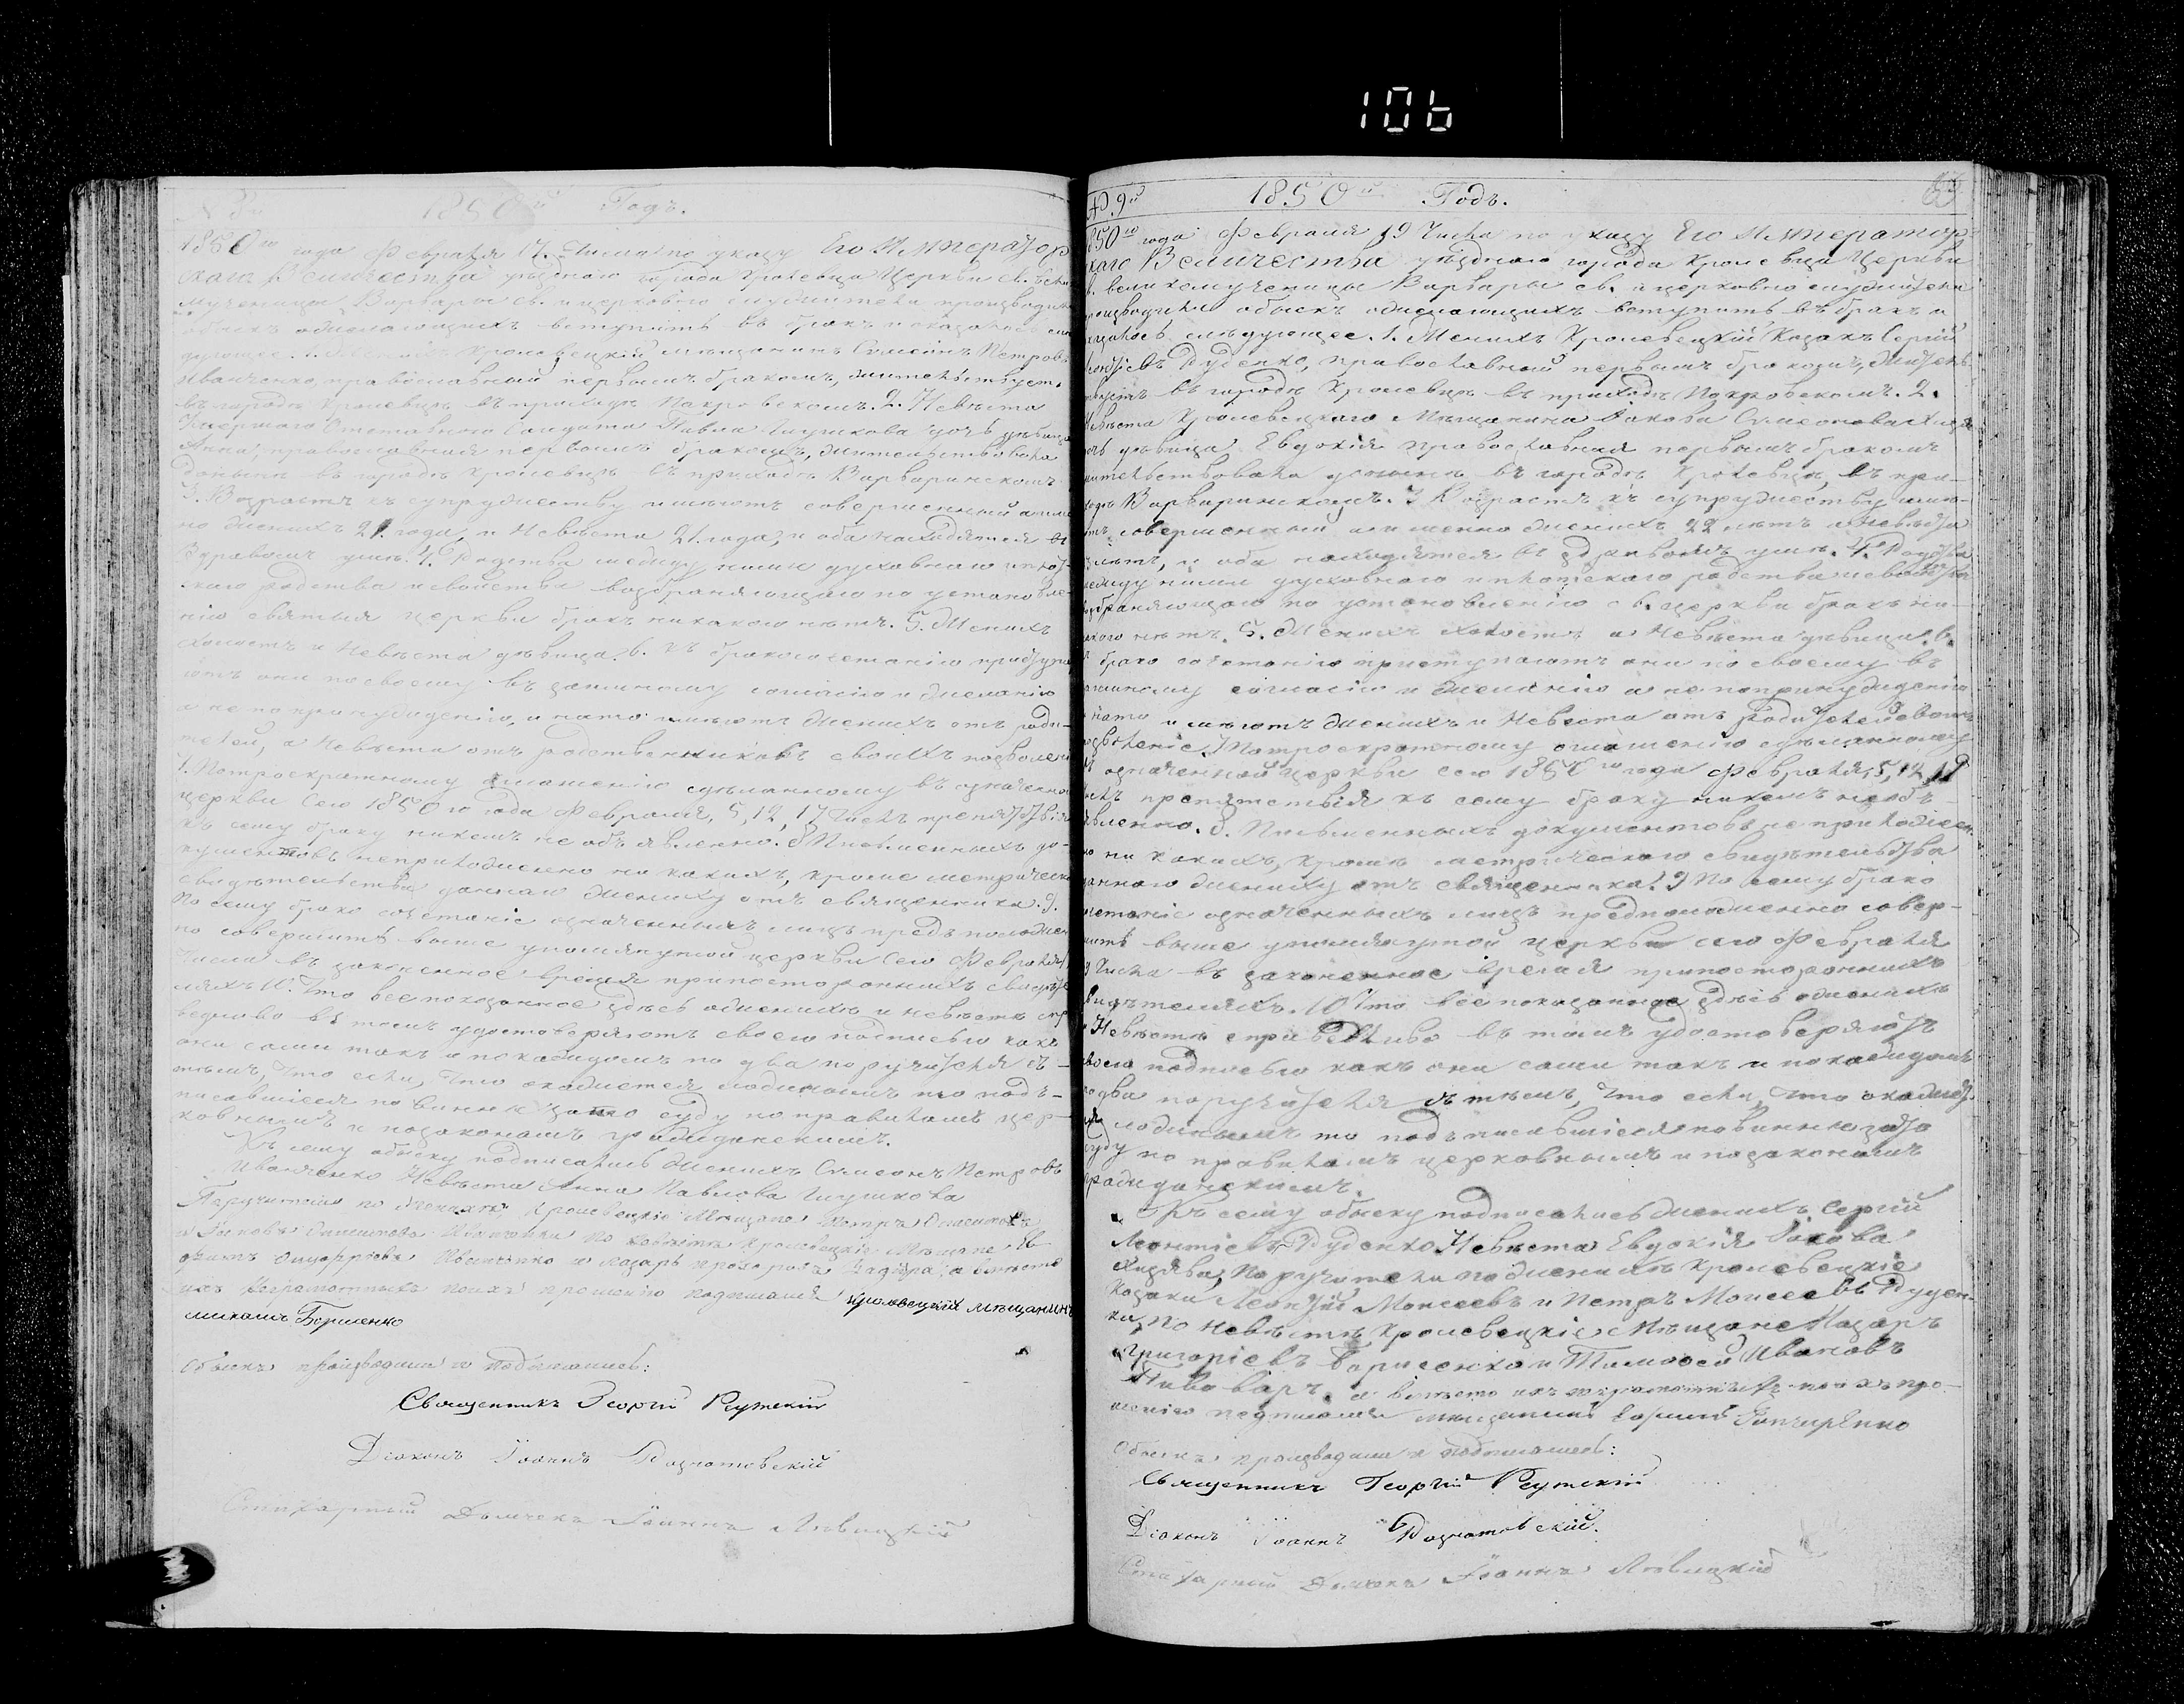 106
1850й Годъ.
1850го года Февраля 17. Числа по указу Его Император
скаго Величества уѣзднаго города Кролевца Церкви св. Велико
мученицы Варвары св. и церковно служители производили
обыскъ о желающихъ вступить въ бракъ и оказалось слѣ
дующее. 1. Женихъ Кролевецкій мѣщанинъ Симеонъ Петровъ
Иванченко, православный первымъ бракомъ, жительствуетъ
въ городѣ Кролевцѣ въ приходѣ Покровскомъ. 2. Невѣста
Умершаго Отставнаго Солдата Павла Глушкова дочь дѣвица
Анна, православная первымъ бракомъ, жительствовала
донынѣ въ городѣ Кролевцѣ въ приходѣ Варваринскомъ
3. Возрастъ къ супружеству имѣютъ совершенный а имен
но женихъ 21. года, а Невѣста 21. года, и оба находятся въ
здравомъ умѣ. 4. Родства между ними духовнаго и плот
скаго родства и свойства возбраняющаго по установле
нію святыя церкви бракъ никакого нѣтъ. 5. Женихъ
холостъ и Невѣста дѣвица. 6. къ бракосочетанію приступа
ютъ они по своему въ заимному согласію и желанію
а не по принужденію, и на то имѣютъ женихъ отъ роди-
телей, а Невѣста отъ родственниковъ своихъ позволен
7. По троекратному оглашенію сдѣланному въ означенной
церкви Сего 1850го года Февраля, 5, 12, 17 Числъ препятствія
къ сему браку никемъ не объявленно. 8 Письменныхъ до-
кументовъ не приложенно ни какихъ, кроме метрическ
свидѣтельства даннаго жениху отъ священника. 9.
По сему брако сочетаніе означенныхъ лицъ предъ положен
но совершить выше упомянутой церкви Сего Февраля
Числа въ законенное время при постороннихъ свидѣте
ляхъ 10. Что все показанное здѣсь о женихѣ и невѣстѣ спра
ведливо въ томъ удостоверяютъ своею подписью какъ
они сами такъ и по каждомъ по два поручителя съ-
тѣмъ, что если, что окажется ложнымъ то подъ-
писавшіеся повинны за то суду по правиламъ цер-
ковнымъ и по законамъ гражданскимъ.
Къ сему обыску подписались женихъ Симеонъ Петровъ
Иванченко Невѣста Анна Павлова Глушкова
Поручители по женихѣ Кролевецкіе Мѣщане Петръ
и Иванченки по невѣстѣ Кролевецкіе Мѣщане
Иванченко и Назаръ а вместо
ихъ неграмотныхъ по ихъ прошенію подписался Кролевецкій мѣщанинъ
михаилъ Борисенко
Обыскъ производили и подписались:
Священникъ Георгій Рутскій
Діаконъ Іоаннъ Рознатовскій
Стихарный Дьячекъ Іоаннъ Левицкій
№ 9й 1850й Годъ.
850го года Февраля 19 Числа по указу Его Император-
скаго Величества уѣзднаго города Кролевца Церкви
в. великомученицы Варвары св. и церковно служители
роизводили обыскъ о желающихъ вступить въ бракъ и
казалось слѣдующее. 1. Женихъ Кролевецкій Козакъ Сергій
Леонтіевъ Руденко, православный первымъ бракомъ, житель
твуетъ въ городѣ Кролевцѣ въ приходѣ Покровскомъ. 2.
Невѣста Кролевецкаго Мѣщанина Іакова Симеонова
очь дѣвица Евдокія православная первымъ бракомъ
жительствовала донынѣ въ городѣ Кролевцѣ, въ при-
ходѣ Варваринскомъ. 3 Возрастъ къ супружеству имѣ-
ютъ совершенный а именно женихъ 22 лѣтъ а Невѣста
лѣтъ, и оба находятся въ здравомъ умѣ. 4. Родства
между ними духовнаго и плотскаго родства и свойства
озбраняющаго по установленію св. церкви бракъ ни-
акого нѣтъ. 5. Женихъ холостъ а Невѣста дѣвица. 6.
брако сочетанію приступаютъ они по своему въ
аимному согласію и желанію а не по принужденію
на то имѣютъ женихъ и Невѣста отъ родителей своихъ
озволеніе. 7 По троекратному оглашенію сдѣланному
означенной церкви сего 1850го года Февраля, 5, 12, 19
числъ препятствія къ сему браку никемъ не объ-
явленно. 8. Письменныхъ документовъ не приложен-
но ни какихъ, кромѣ метрическаго свидѣтельства
даннаго жениху отъ священника. 9 По сему брако
четаніе означенныхъ лицъ предположенно совер-
шить выше упомянутой церкви сего Февраля
Числа въ законенное время при постороннихъ
видѣтеляхъ. 10 Что все показанное здѣсь о женихѣ
и Невѣстѣ справедливо въ томъ удостоверяютъ
своею подписью какъ они сами такъ и по каждомъ
по два поручителя съ тѣмъ, что если, что окажет
ся ложнымъ то подъписавшіеся повинны за то
суду по правиламъ церковнымъ и по законамъ
гражданскимъ.
Къ сему обыску подписались женихъ Сергій
Леонтіевъ Руденко Невѣста Евдокія Іакова
Поручители по женихѣ Кролевецкіе
Козаки Леонтій Моисеевъ и Петръ Моисеевъ Руден-
ки, По невѣстѣ Кролевецкіе Мѣщане Назаръ
Григоріевъ Борисенко и Тимофей Ивановъ
Пивоваръ, а вместо ихъ неграмотныхъ по ихъ про-
шенію подписался мѣщанинъ Гончаренко
Обыскъ производили и подписались:
Священникъ Георгій Рутскій
Діаконъ Іоаннъ Рознатовскій.
Стихарный Дьячекъ Іоаннъ Левицкій